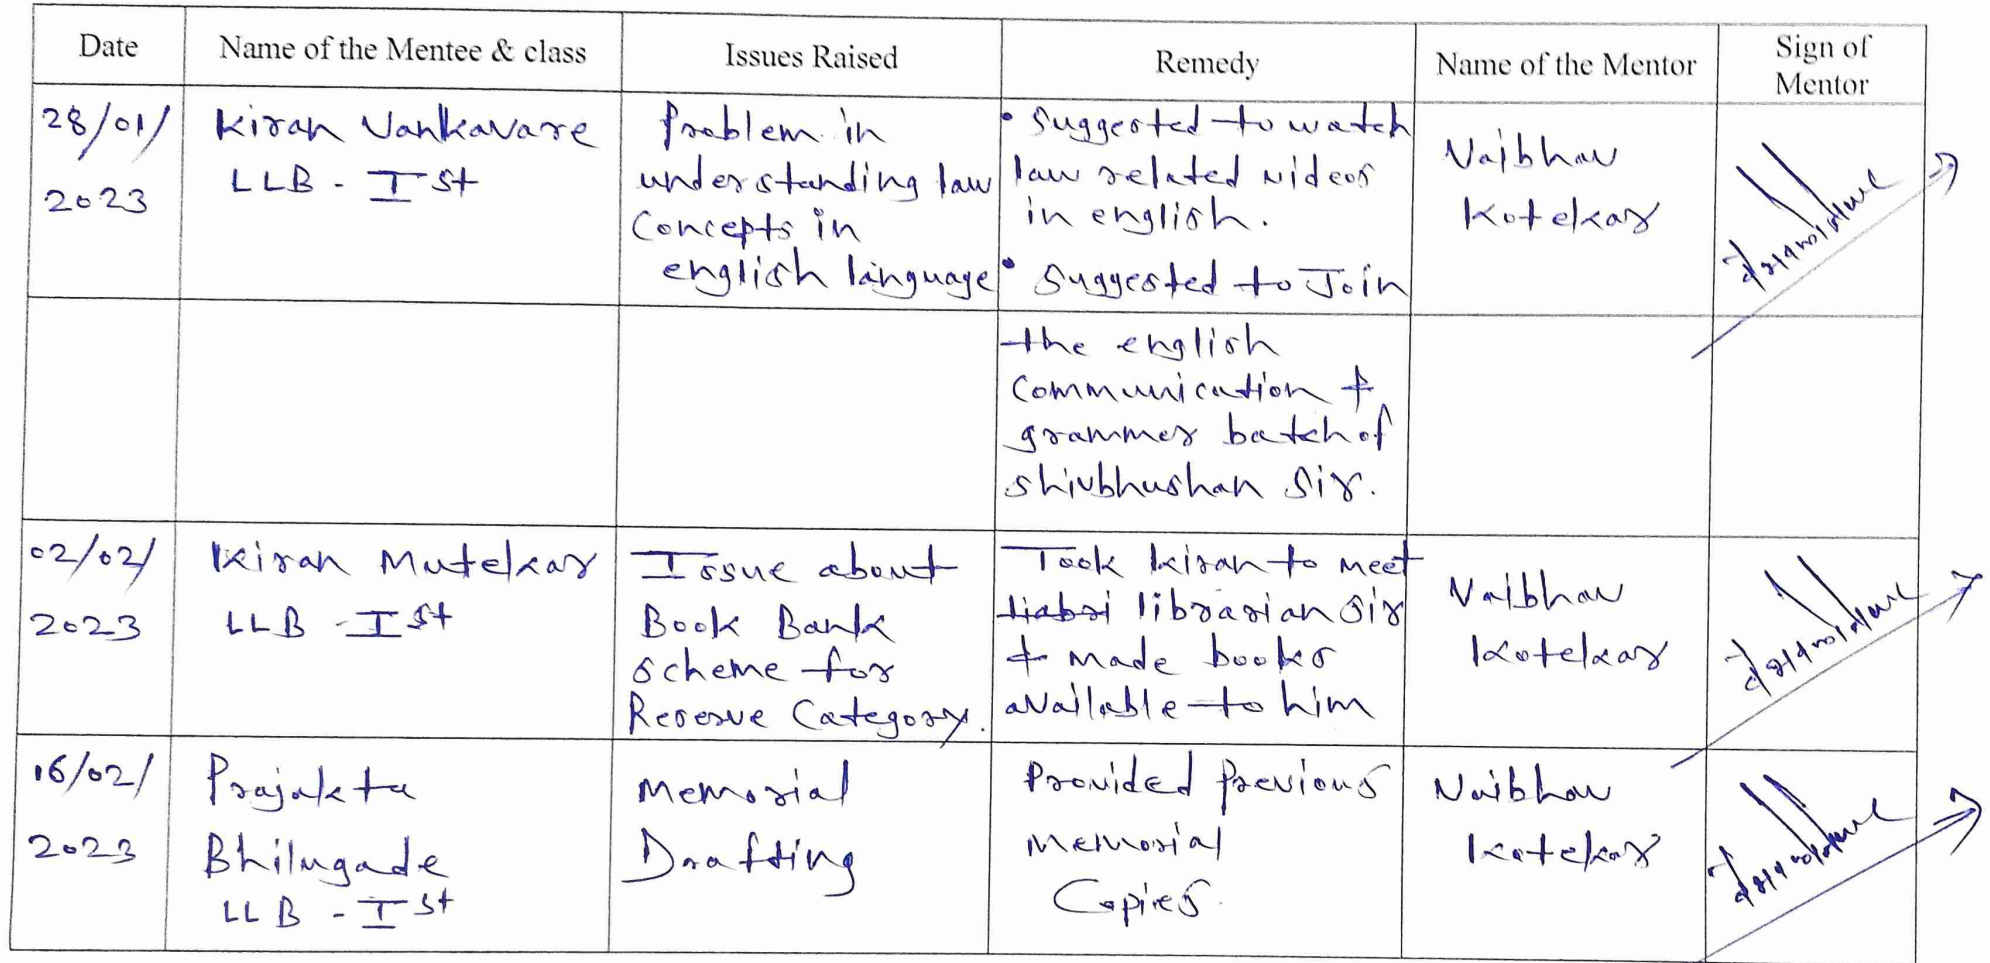 Date
Name of the Mentee & class
Issues Raised
Remedy
Name of the Mentor
Sign of
Mentor
28/01/
2023
Kiran Vankavare
LLB - I st
Problem in
understanding law
Concepts in
english language
• Suggested to watch
law related videos
in english.
• Suggested to Join
the english
communication &
grammer batch of
shivbhushan Sir.
Vaibhav
Kotekar
02/02/
2023
Kiran Mutekar
LLB - I st
Issue about
Book Bank
Scheme for
Reserve Category.
Took kiran to meet
liabri librarian Sir
& made books
available to him
Vaibhav
Kotekar
16/02/
2023
Prajakta
Bhilugade
LLB - I st
Memorial
Drafting
Provided previous
Memorial
Copies.
Vaibhav
Kotekar